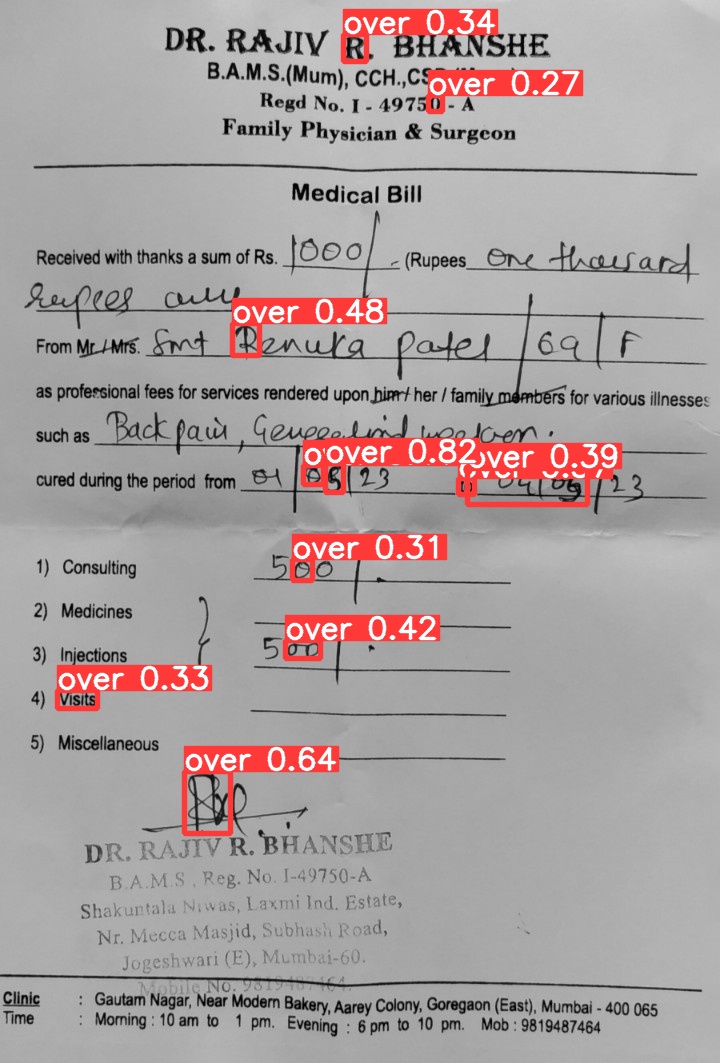 over 0.34
DR. RAJIV R. BHANSHE
B.A.M.S.(Mum), CCH.,
over 0.27
Regd No. I - 49750 - A
Family Physician & Surgeon
Medical Bill
Received with thanks a sum of Rs. 1000/- (Rupees one thousand
rupees only
over 0.48
From Mr./Mrs. Smt Renuka Patel / 69 / F
as professional fees for services rendered upon him / her / family members for various illnesses
such as Back pain,
over 0.82 over 0.39
cured during the period from 01/05/23 04/05/23
over 0.31
1) Consulting 500/-
2) Medicines
over 0.42
3) Injections 500/-
over 0.33
4) Visits
5) Miscellaneous
over 0.64
DR. RAJIV R. BHANSHE
B.A.M.S , Reg. No. I-49750-A
Shakuntala Niwas, Laxmi Ind. Estate,
Nr. Mecca Masjid, Subhash Road,
Jogeshwari (E), Mumbai-60.
Mobile No. 9819487464.
Clinic : Gautam Nagar, Near Modern Bakery, Aarey Colony, Goregaon (East), Mumbai - 400 065
Time : Morning : 10 am to 1 pm. Evening : 6 pm to 10 pm. Mob : 9819487464